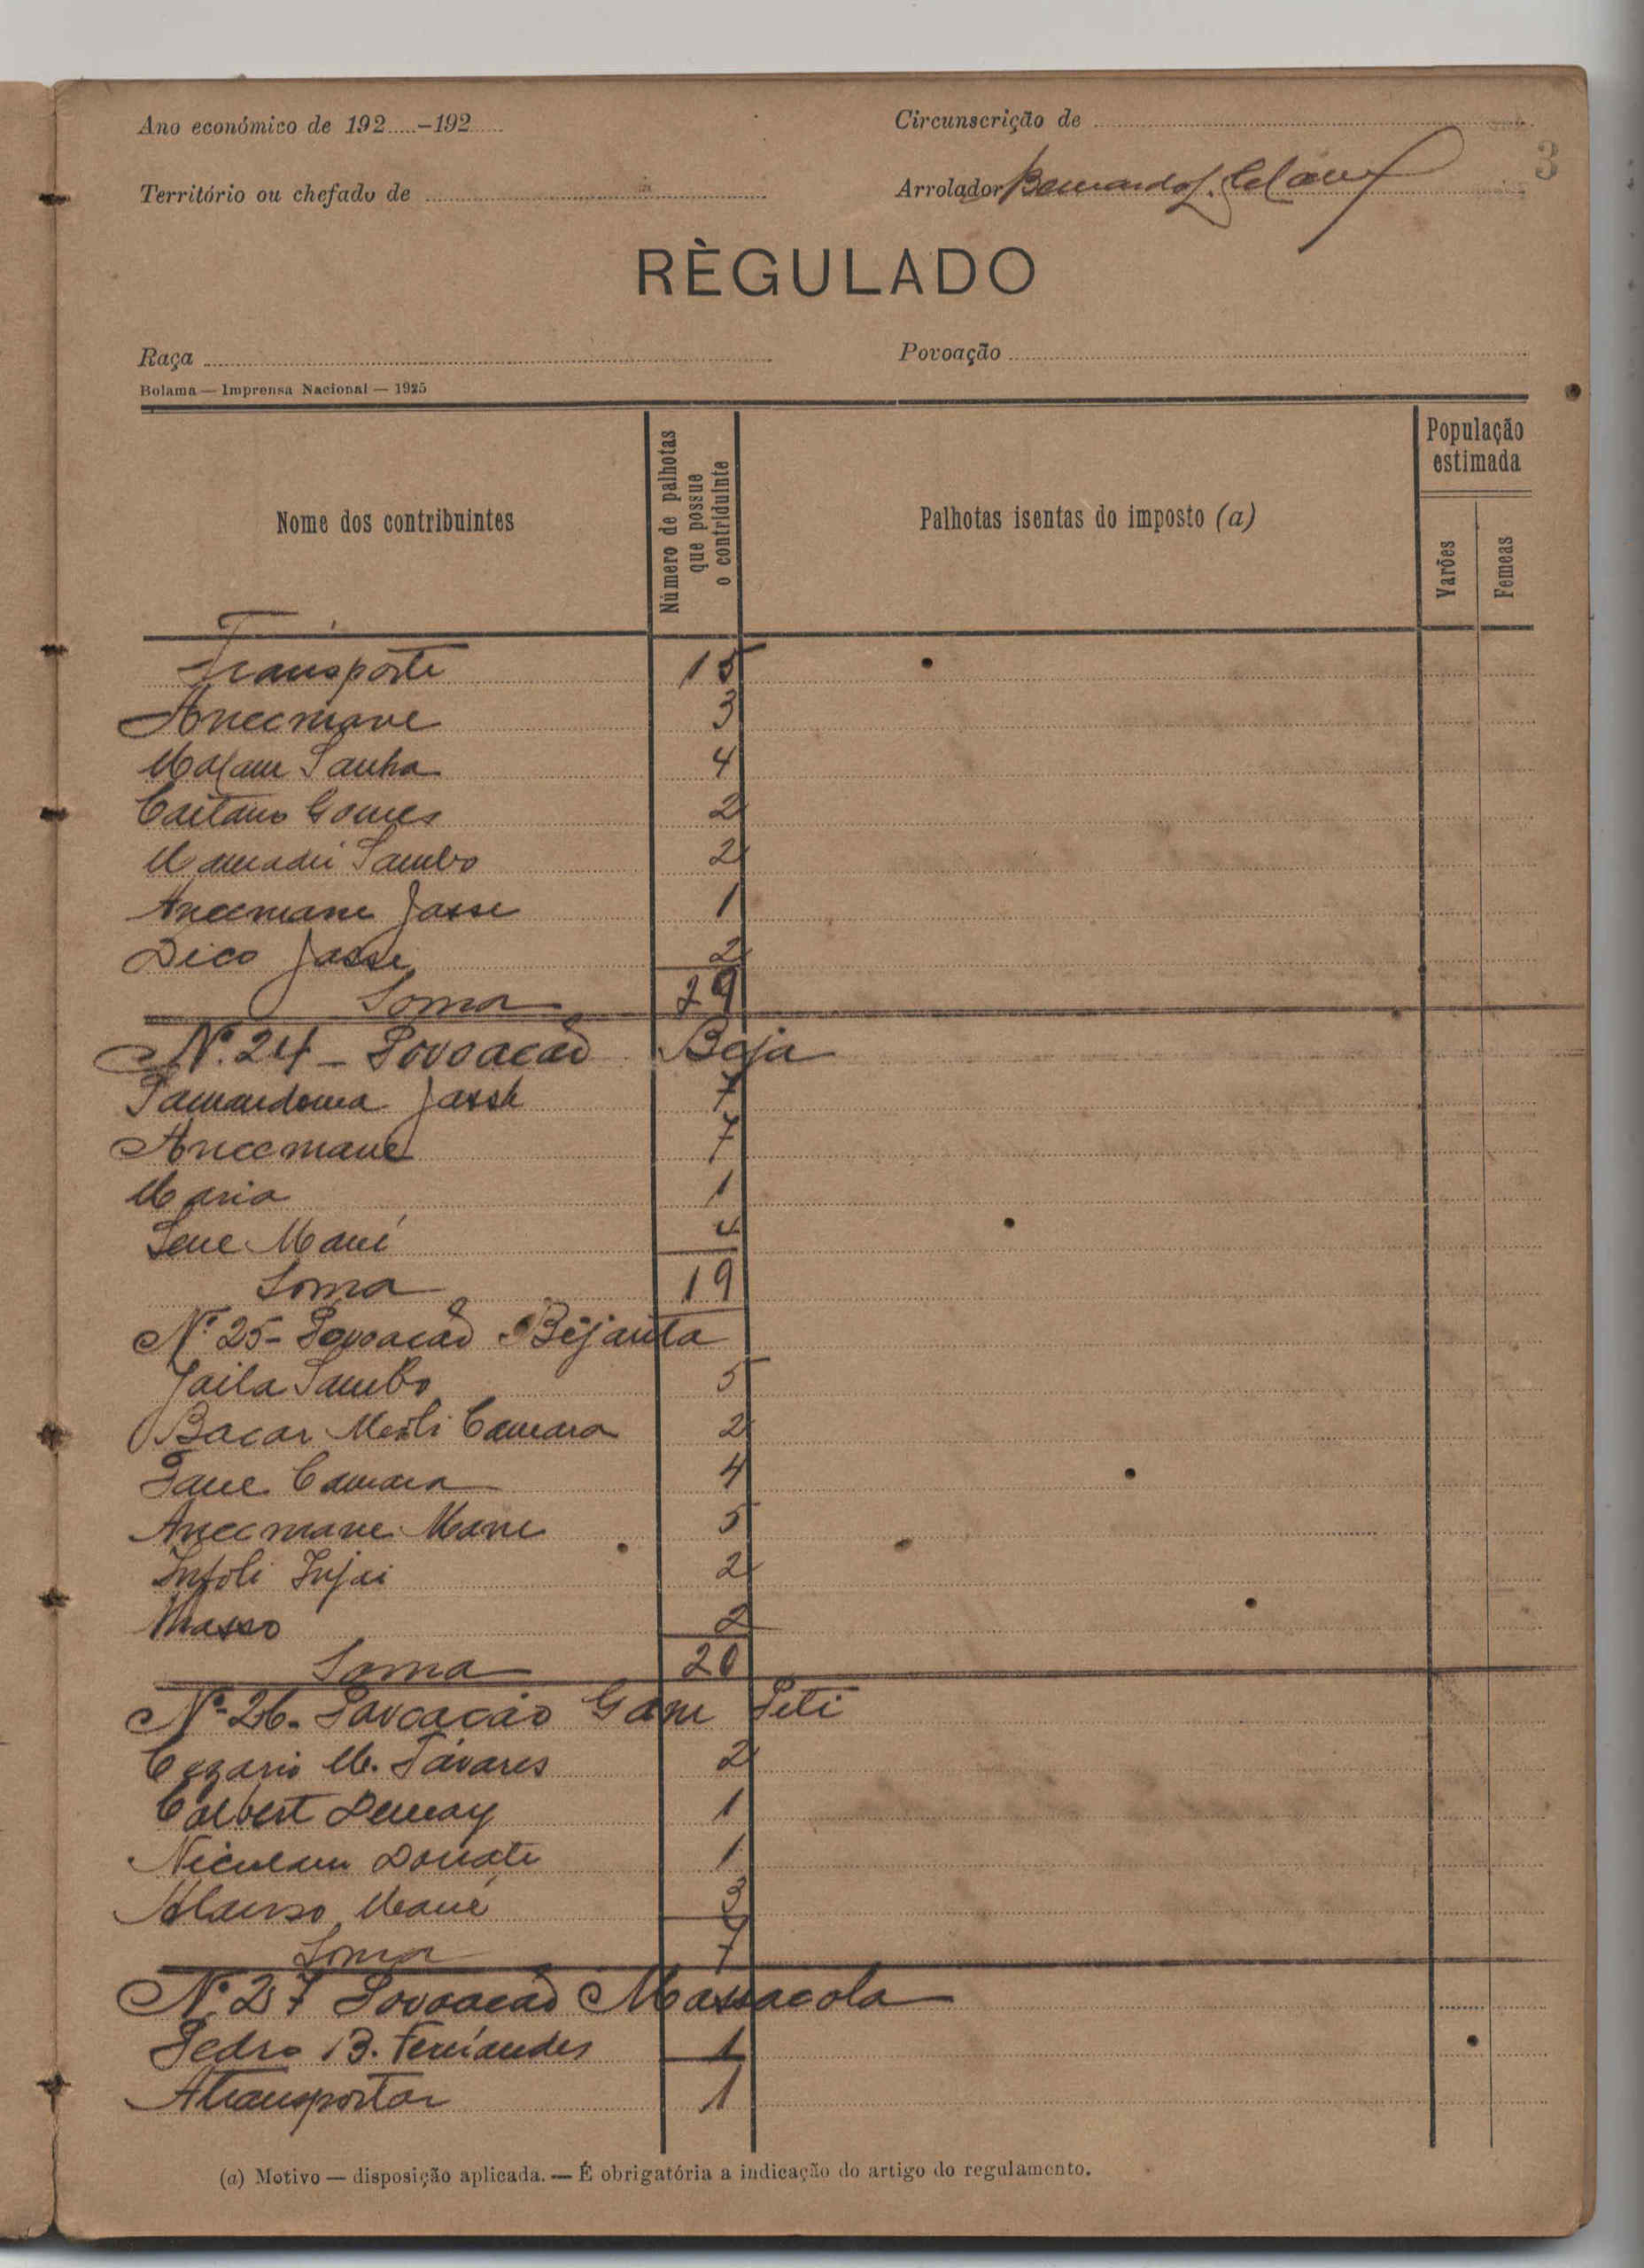 Ano económico de 192.....-192.....
Circunscrição de
3
Território ou chefado de
Arrolador Bernardo
RÈGULADO
Raça
Povoação
Bolama — Imprensa Nacional — 1925
Nome dos contribuintes
Número de palhotas que possue o contriduinte
Palhotas isentas do imposto (a)
População estimada
Varões
Femeas
Transporte 15
Aneemane 3
Malam Sanha 4
Caetano Gomes 2
Mamadú Sambo 2
Aneemane Jasse 1
Dico Jasse 2
Soma 29
Nº 24 - Povoacão Beja
Jasse 7
Aneemane 7
Maria 1
Sene Mané 4
Soma 19
Nº 25 - Povoacão Bijanta
Jaila Sambo 5
Bacar Camara 2
Camara 4
Aneemane Mane 5
Infoli Injai 2
Masso 2
Soma 20
Nº 26 - Povoacão Gam Peti
Cezario M. Tavares 2
Calbert 1
Donate 1
Mané 3
Soma 7
Nº 27 Povoacão Massacola
Pedro B. Fernandes 1
A transportar 1
(a) Motivo — disposição aplicada. — É obrigatória a indicação do artigo do regulamento.